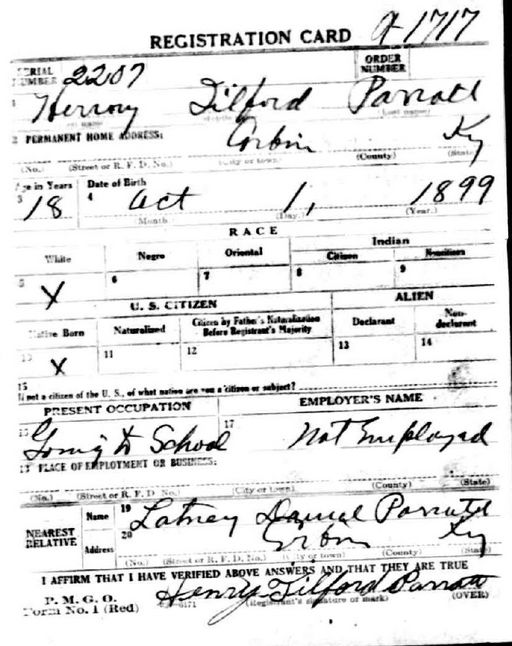 REGISTRATION CARD A-1717
SERIAL NUMBER 2207 ORDER NUMBER
1 Henry Tilford Parrott
2 PERMANENT HOME ADDRESS: Corbin Ky
(No.) (Street or R. F. D. No.) (City or town) (County) (State)
Age in Years Date of Birth
3 18 4 Oct 1, 1899
Month (Day.) (Year.)
RACE
White Negro Oriental Indian
Citizen Noncitizen
5 X 6 7 8 9
U. S. CITIZEN ALIEN
Native Born Naturalized Citizen by Father's Naturalization Before Registrant's Majority Declarant Non-declarant
10 X 11 12 13 14
15
If not a citizen of the U. S., of what nation are you a citizen or subject?
PRESENT OCCUPATION EMPLOYER'S NAME
16 Going to School 17 Not Employed
18 PLACE OF EMPLOYMENT OR BUSINESS:
(No.) (Street or R. F. D. No.) (City or town) (County) (State)
NEAREST RELATIVE Name 19 Latney Daniel Parrott
Address 20 Corbin Ky
(No.) (Street or R. F. D. No.) (City or town) (County) (State)
I AFFIRM THAT I HAVE VERIFIED ABOVE ANSWERS AND THAT THEY ARE TRUE
P. M. G. O.
Form No. 1 (Red) Henry Tilford Parrott
(Registrant's signature or mark) (OVER)